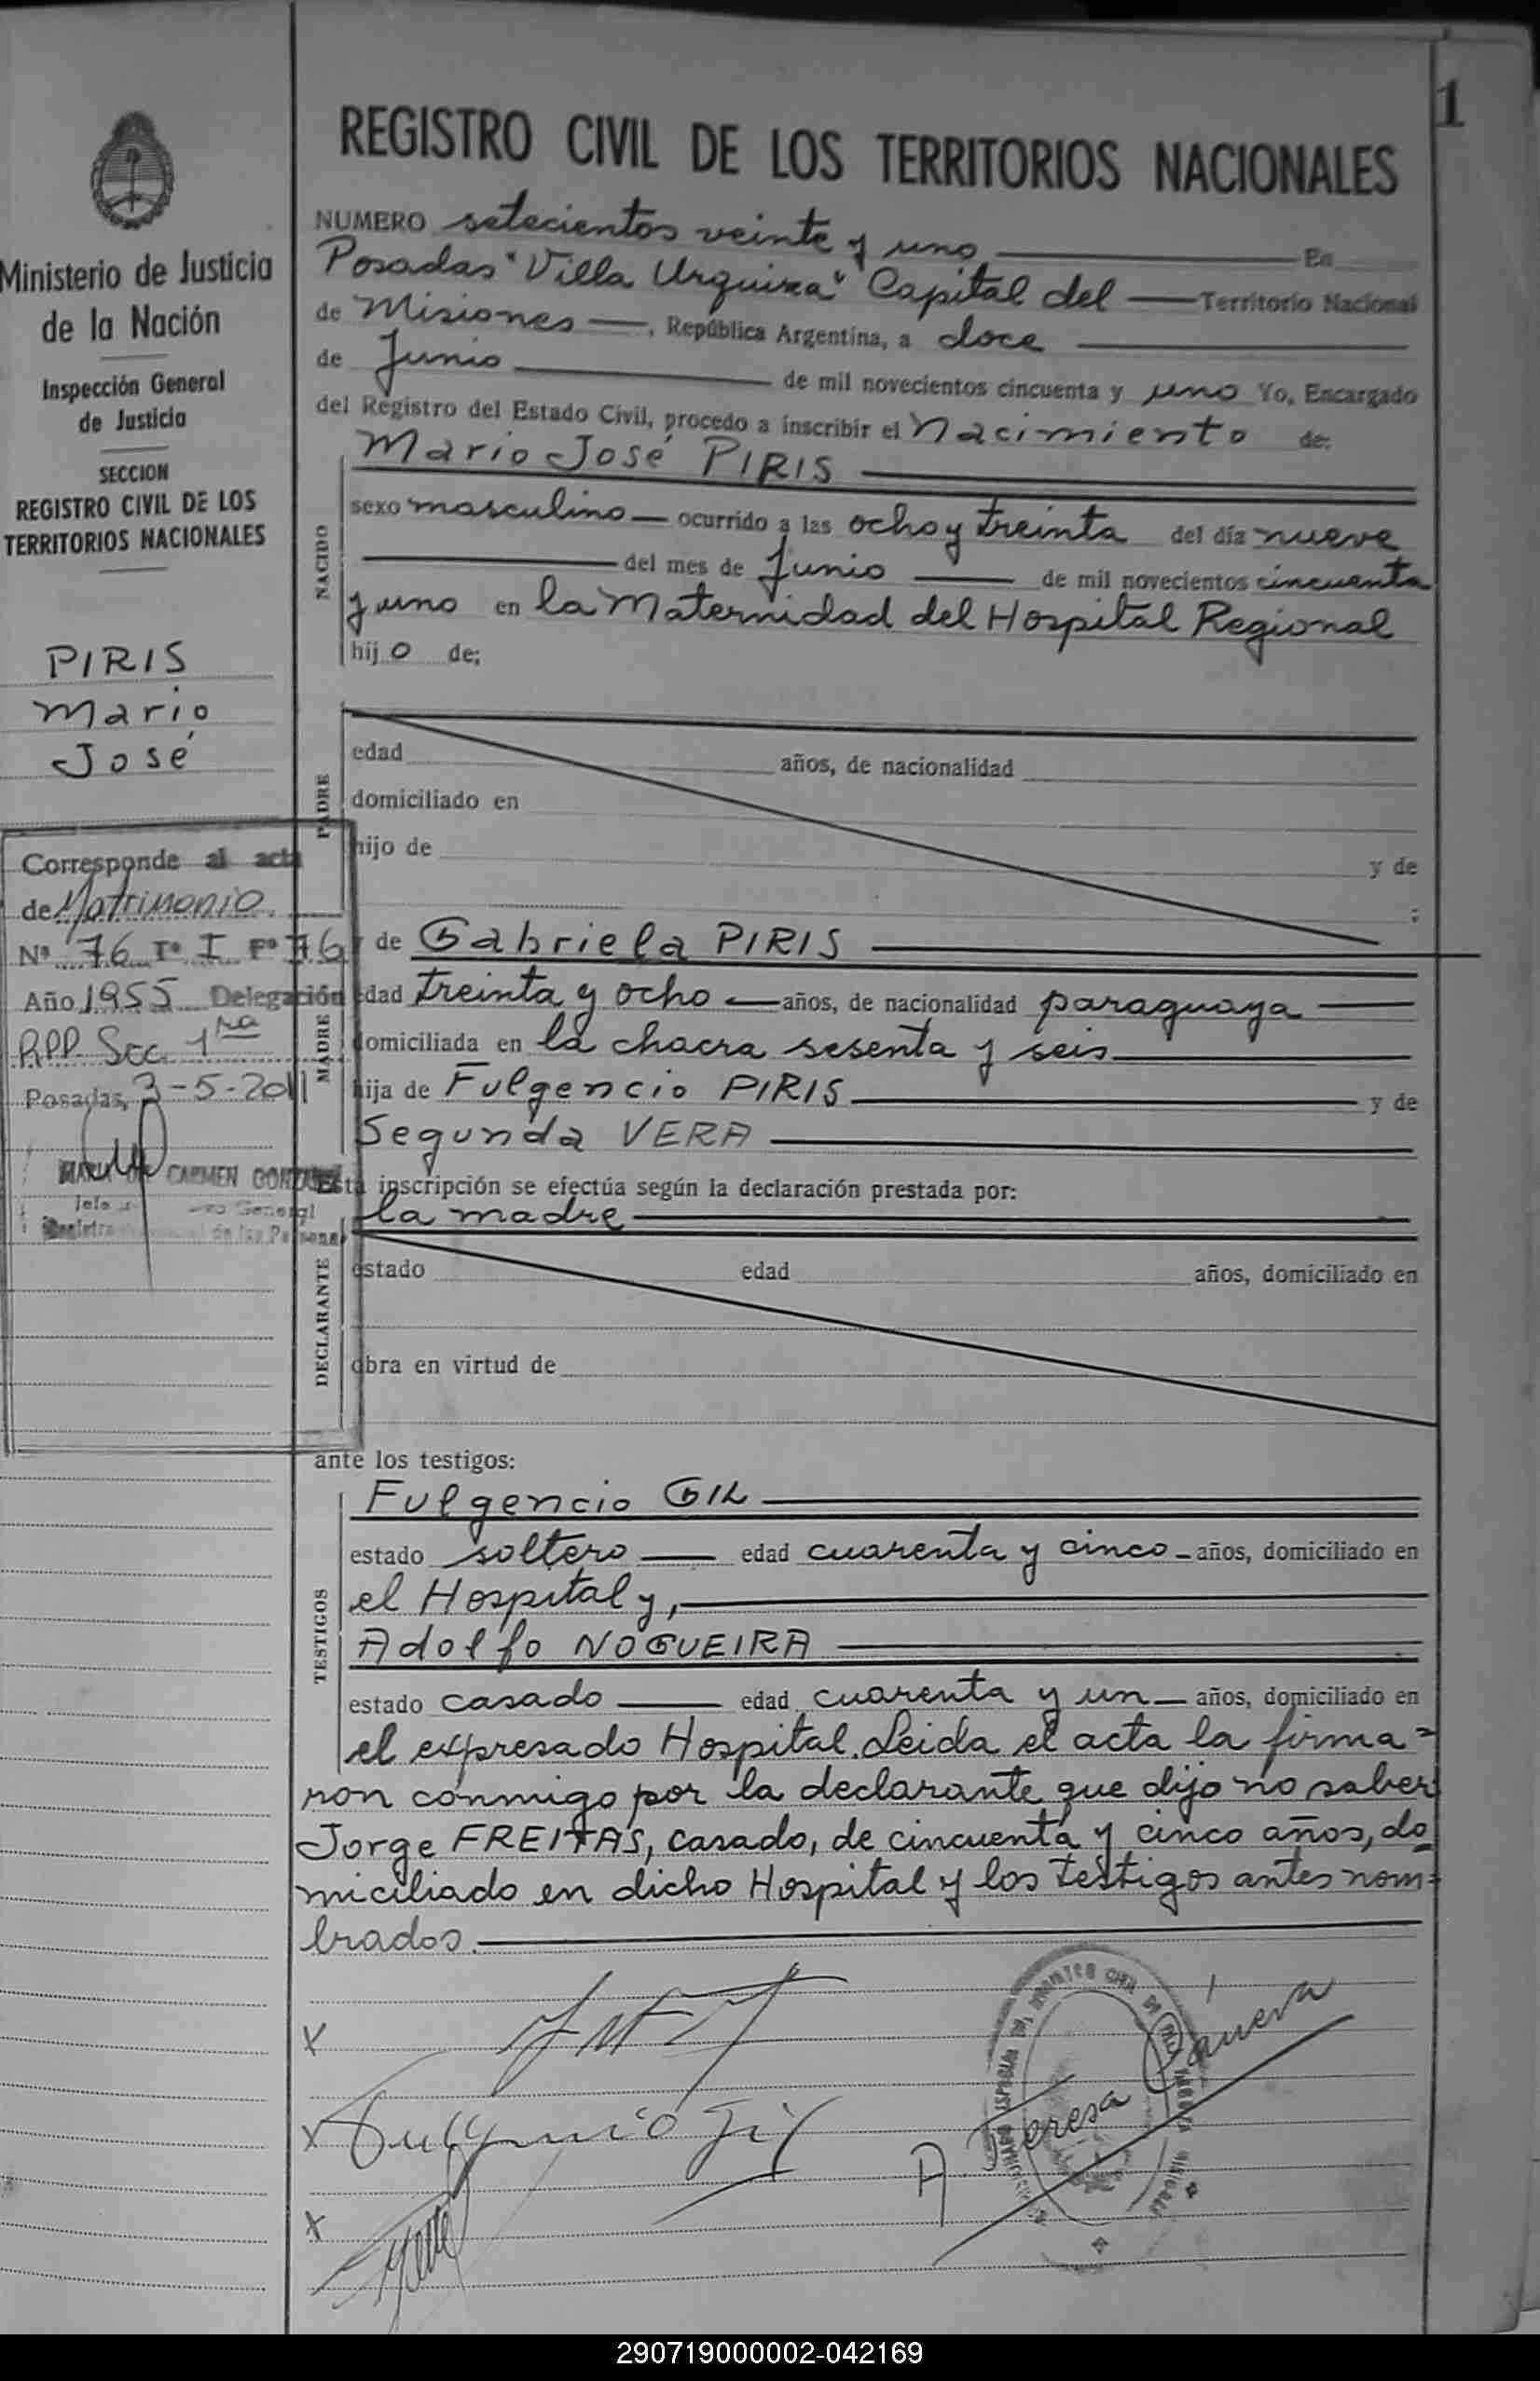 1
REGISTRO CIVIL DE LOS TERRITORIOS NACIONALES
Ministerio de Justicia
de la Nación
Inspección General
de Justicia
SECCION
REGISTRO CIVIL DE LOS
TERRITORIOS NACIONALES
PIRIS
Mario
José
Corresponde al acta
de Matrimonio
Nº 76 Tº I Fº 76
Año 1955 Delegación
Sec. 1ra
Posadas, 3-5-2011
MARIA CARMEN
General
NUMERO setecientos veinte y uno En
Posadas "Villa Urquiza" Capital del Territorio Nacional
de Misiones, República Argentina, a doce
de Junio de mil novecientos cincuenta y uno Yo, Encargado
del Registro del Estado Civil, procedo a inscribir el Nacimiento de:
NACIDO
Mario José PIRIS
sexo masculino ocurrido a las ocho y treinta del día nueve
del mes de Junio de mil novecientos cincuenta
y uno en la Maternidad del Hospital Regional
hijo de;
PADRE
edad años, de nacionalidad
domiciliado en
hijo de y de
;
MADRE
y de Gabriela PIRIS
edad treinta y ocho años, de nacionalidad paraguaya
domiciliada en la chacra sesenta y seis
hija de Fulgencio PIRIS y de
Segunda VERA
Esta inscripción se efectúa según la declaración prestada por:
la madre
DECLARANTE
estado edad años, domiciliado en
obra en virtud de
ante los testigos:
TESTIGOS
Fulgencio GIL
estado soltero edad cuarenta y cinco años, domiciliado en
el Hospital y,
Adolfo NOGUEIRA
estado casado edad cuarenta y un años, domiciliado en
el expresado Hospital. Leida el acta la firma=
ron conmigo por la declarante que dijo no saber
Jorge FREITAS, casado, de cincuenta y cinco años, do
miciliado en dicho Hospital y los testigos antes nom=
brados.
X
X Fulgencio Gil
X
A Teresa
290719000002-042169